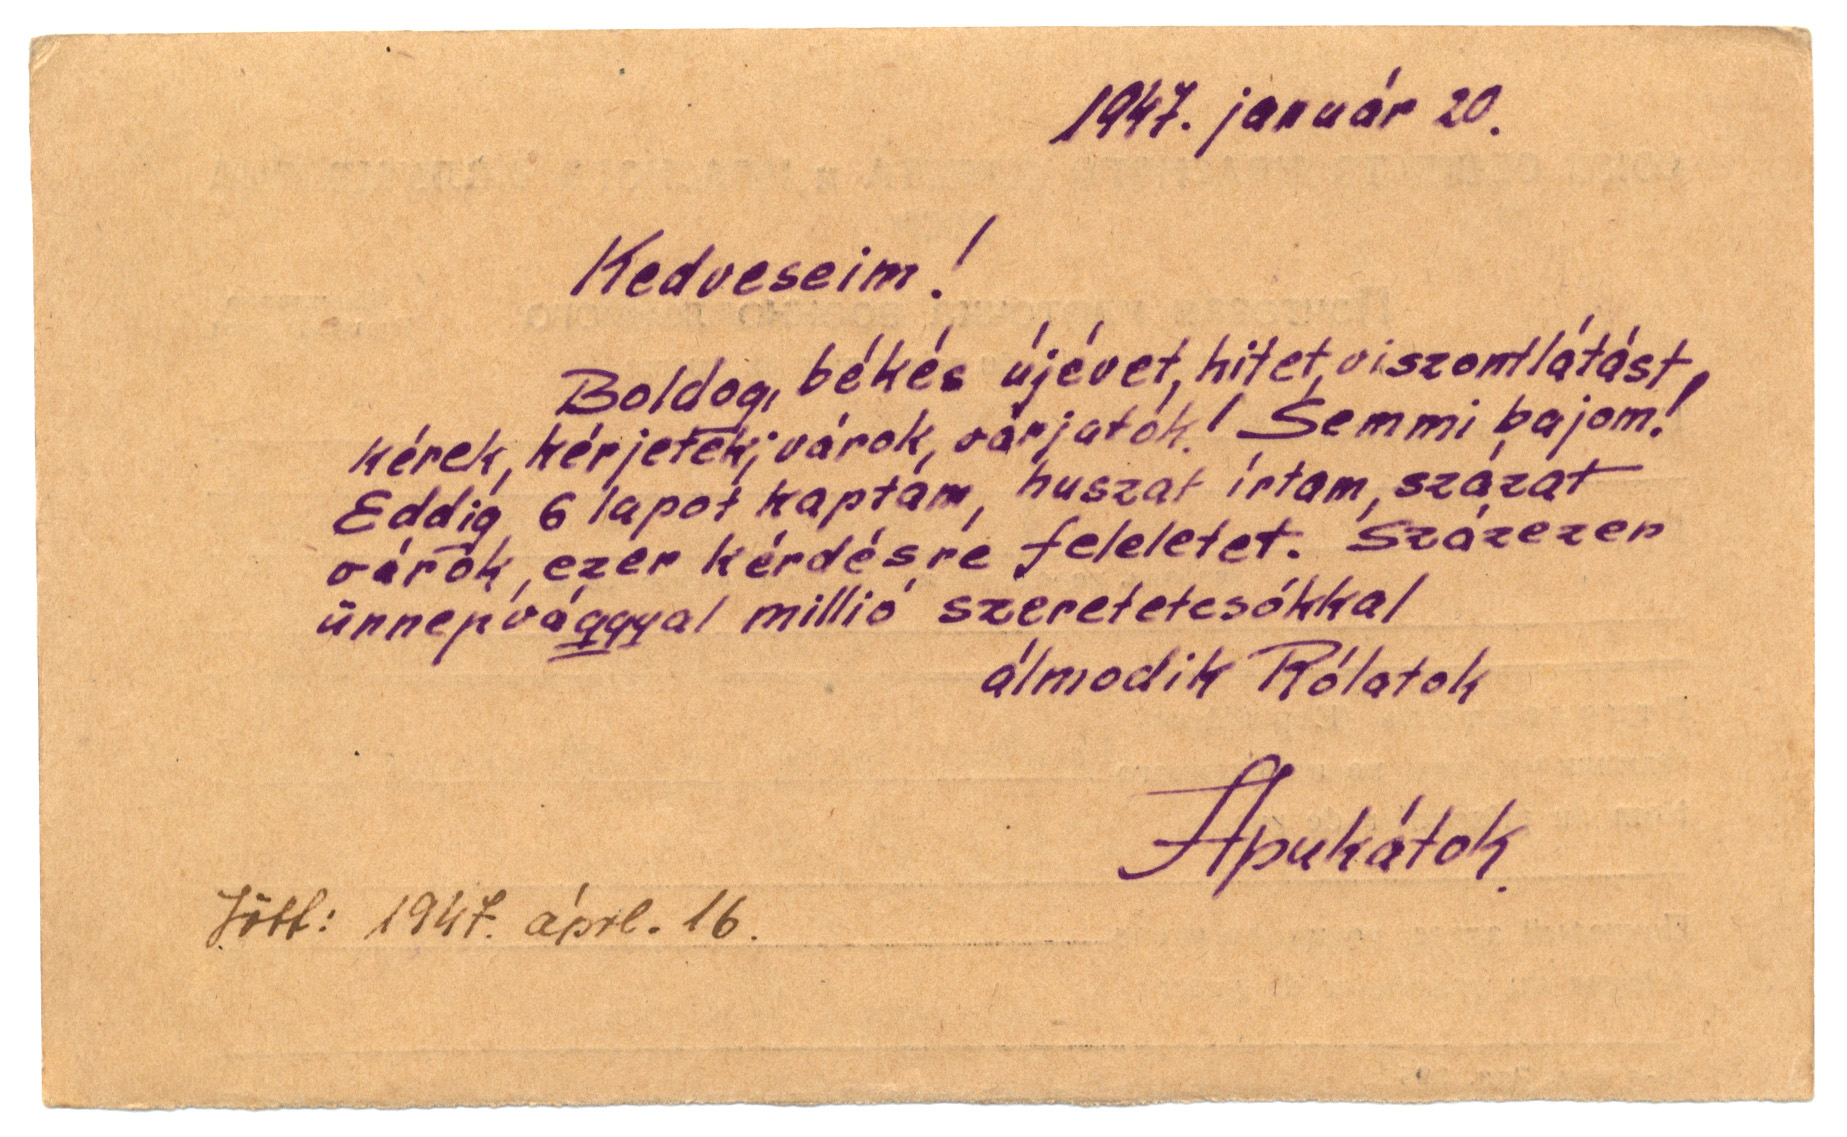 1947. január 20.
Kedveseim!
Boldog, békés újévet, hitet, viszontlátást
kérek, kérjetek; várok, várjatok! Semmi bajom!
Eddig 6 lapot kaptam, huszat írtam, százat
várok, ezer kérdésre feleletet. Százezer
ünnepvággyal millió szeretetcsókkal
álmodik Rólatok
Apukátok.
Jött: 1947. ápr. 16.